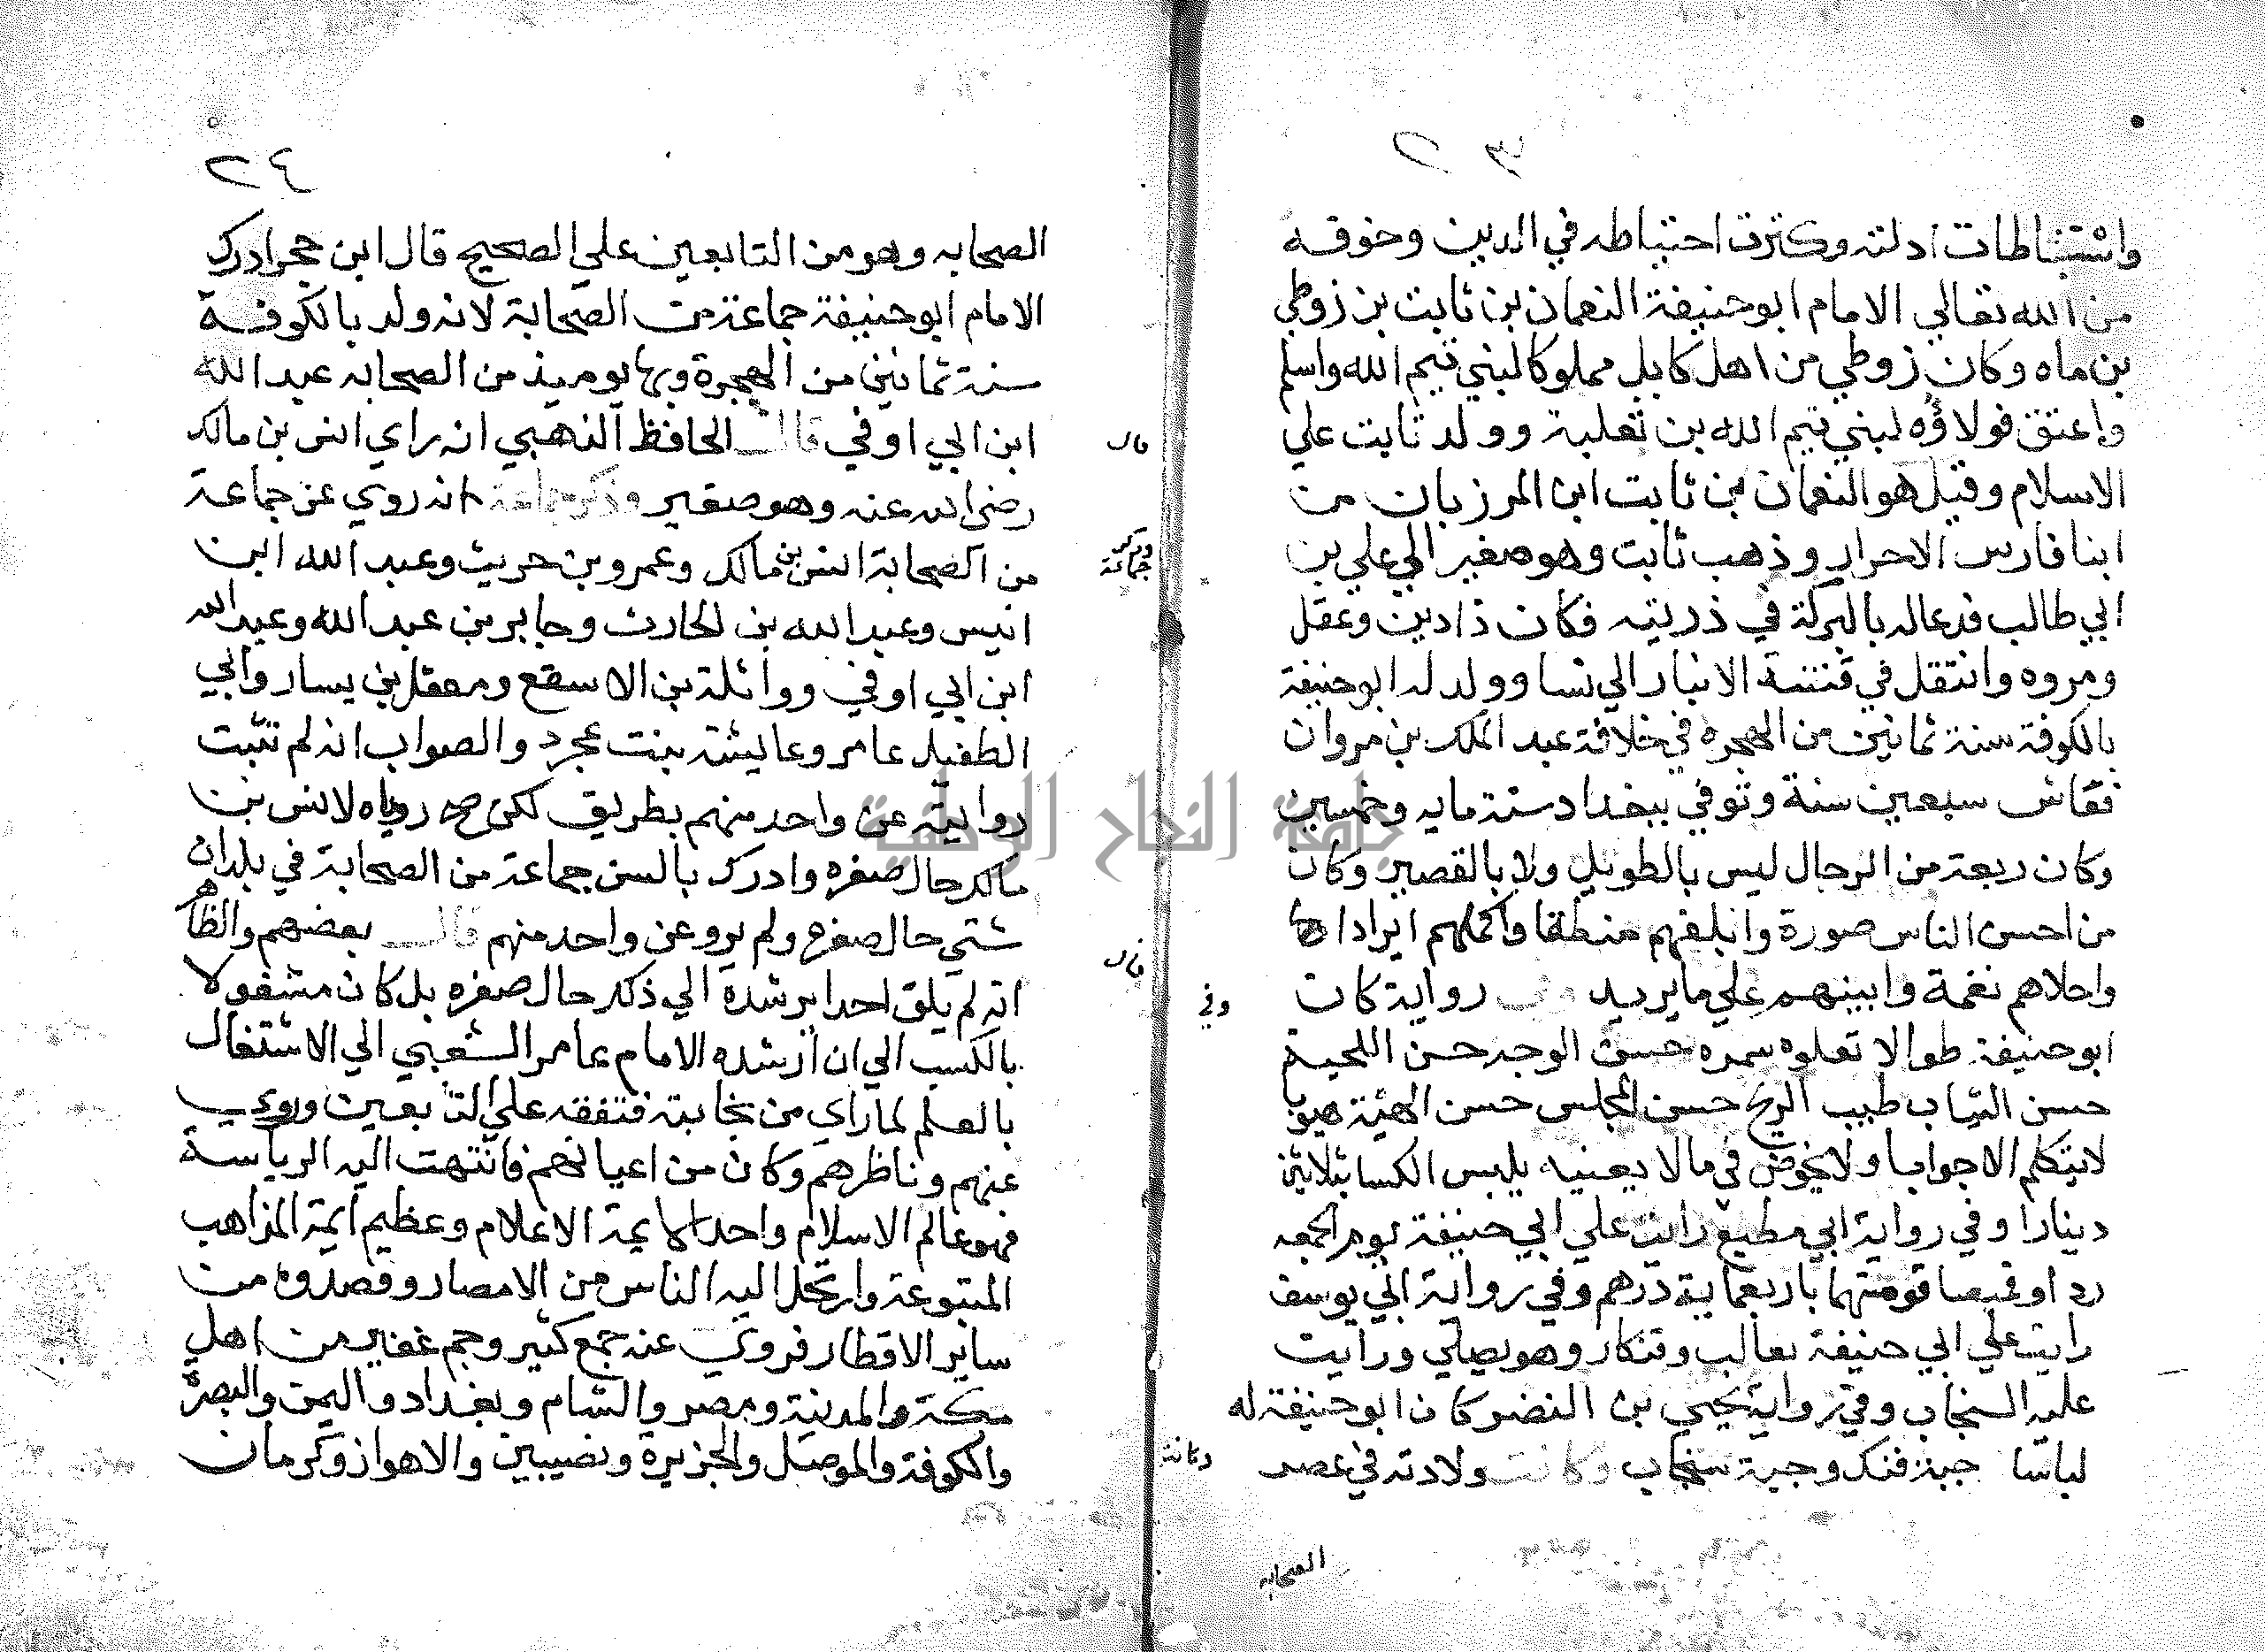 ٢٣
واستنباطات ادلته وكثرت احتياطه في الدين وخوفه
من الله تعالي الامام ابو حنيفة النعمان بن ثابت بن زوطي
بن ماه وكان زوطي من اهل كابل مملوكا لبني تيم الله واسلم
واعتق فولاؤه لبني تيم الله بن ثعلبة وولد ثابت علي
الاسلام وقيل هو النعمان بن ثابت ابن المرزبان من
ابنا فارس الاحرار وذهب ثابت وهو صغير الي علي بن
ابي طالب فدعاله بالبركة في ذريته فكان ذا دين وعقل
ومروه وانتقل في فتنة الانبار الي نسا وولد له ابو حنيفة
بالكوفة سنة ثمانين من الهجره في خلافة عبد الملك بن مروان
فعاش سبعين سنة وتوفي ببغداد سنة مايه وخمسين
وكان ربعة من الرجال ليس بالطويل ولا بالقصير وكان
من احسن الناس صورة وابلغهم منطقا واكملهم ايرادا
واحلاهم نغمة وابينهم علي ما يريد وفي رواية كان
وفي
ابو حنيفة طوالا تعلوه سمره حسن الوجه حسن اللحية
حسن الثياب طيب الريح حسن المجلس حسن الهيئة هيوبا
لا يتكلم الا جوابا ولا يخوض في ما لا يعنيه يلبس الكسا بثلاثين
دينارا وفي رواية ابي مطيع رايت علي ابي حنيفة يوم الجمعه
ردا وقميصا قومتهما باربعماية درهم وفي رواية ابي يوسف
رايت علي ابي حنيفة وهو يصلي ورايت
عليه السنجاب وفي رواية يحيي بن النضر كان ابو حنيفة له
لباسا جبة فنك وجبة سنجاب وكانت ولادته في عصر
وكانت
الصحابه
٢٤
الصحابه وهو من التابعين علي الصحيح قال ابن حجر ادرك
الامام ابو حنيفة جماعة من الصحابة لانه ولد بالكوفة
سنة ثمانين من الهجرة وبها يوميذ من الصحابه عبد الله
ابن ابي اوفي قال الحافظ الذهبي انه راي انس بن مالك
قال
رضي الله عنه وهو صغير وذكر جماعة انه روي عن جماعة
وذكر جماعة
من الصحابة انس بن مالك وعمرو بن حريث وعبد الله ابن
انيس وعبد الله بن الحارث وجابر بن عبد الله وعبد الله
ابن ابي اوفي وواثلة بن الاسقع ومعقل بن يسار وابي
الطفيل عامر وعايشة بنت عجرد والصواب انه لم تثبت
روايته عن واحد منهم بطريق لكن صح رؤياه لانس بن
مالك حال صغره وادرك بالسن جماعة من الصحابة في بلدان
شتي حال صغره ولم يرو عن واحد منهم قال بعضهم والظاهر
قال
انه لم يلق احدا يرشده الي ذلك حال صغره بل كان مشغولا
بالكسب الي ان ارشده الامام عامر الشعبي الي الاشتغال
بالعلم لما راي من نجابته فتفقه علي التابعين وروي
عنهم وناظرهم وكان من اعيانهم فانتهت اليه الرياسة
فهو عالم الاسلام واحد الايمة الاعلام وعظيم ايمة المذاهب
المتبوعة وارتحل اليه الناس من الامصار وقصدوه من
ساير الاقطار فروي عنه جمع كثير وجم غفير من اهل
مكة والمدينة ومصر والشام وبغداد واليمن والبصرة
والكوفة والموصل والجزيرة ونصيبين والاهواز وكرمان
جامعة النجاح الوطنية